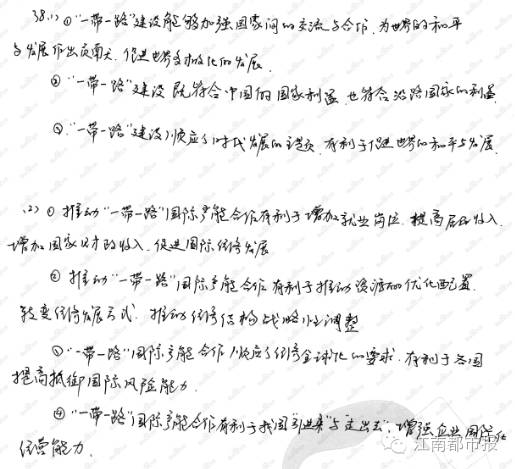 38.(1) ①"一带一路"建设能够加强国家间的交流与合作,为世界的和平
与发展作出贡献,促进世界多极化的发展.
②"一带一路"建设既符合中国的国家利益,也符合沿路国家的利益.
③."一带一路"建设顺应了时代发展的诉求,有利于促进世界的和平与发展.
(2) ①推动"一带一路"国际产能合作有利于增加就业岗位,提高居民收入,
增加国家财政收入,促进国际经济发展
②推动"一带一路"国际产能合作有利于推动资源的优化配置
转变经济发展方式,推动经济结构战略性调整
③"一带一路"国际产能合作顺应了经济全球化的要求,有利于各国
提高抵御国际风险能力.
④"一带一路"国际产能合作有利于我国"引进来"与走出去",增强企业国际化
经营能力.
江南都市报